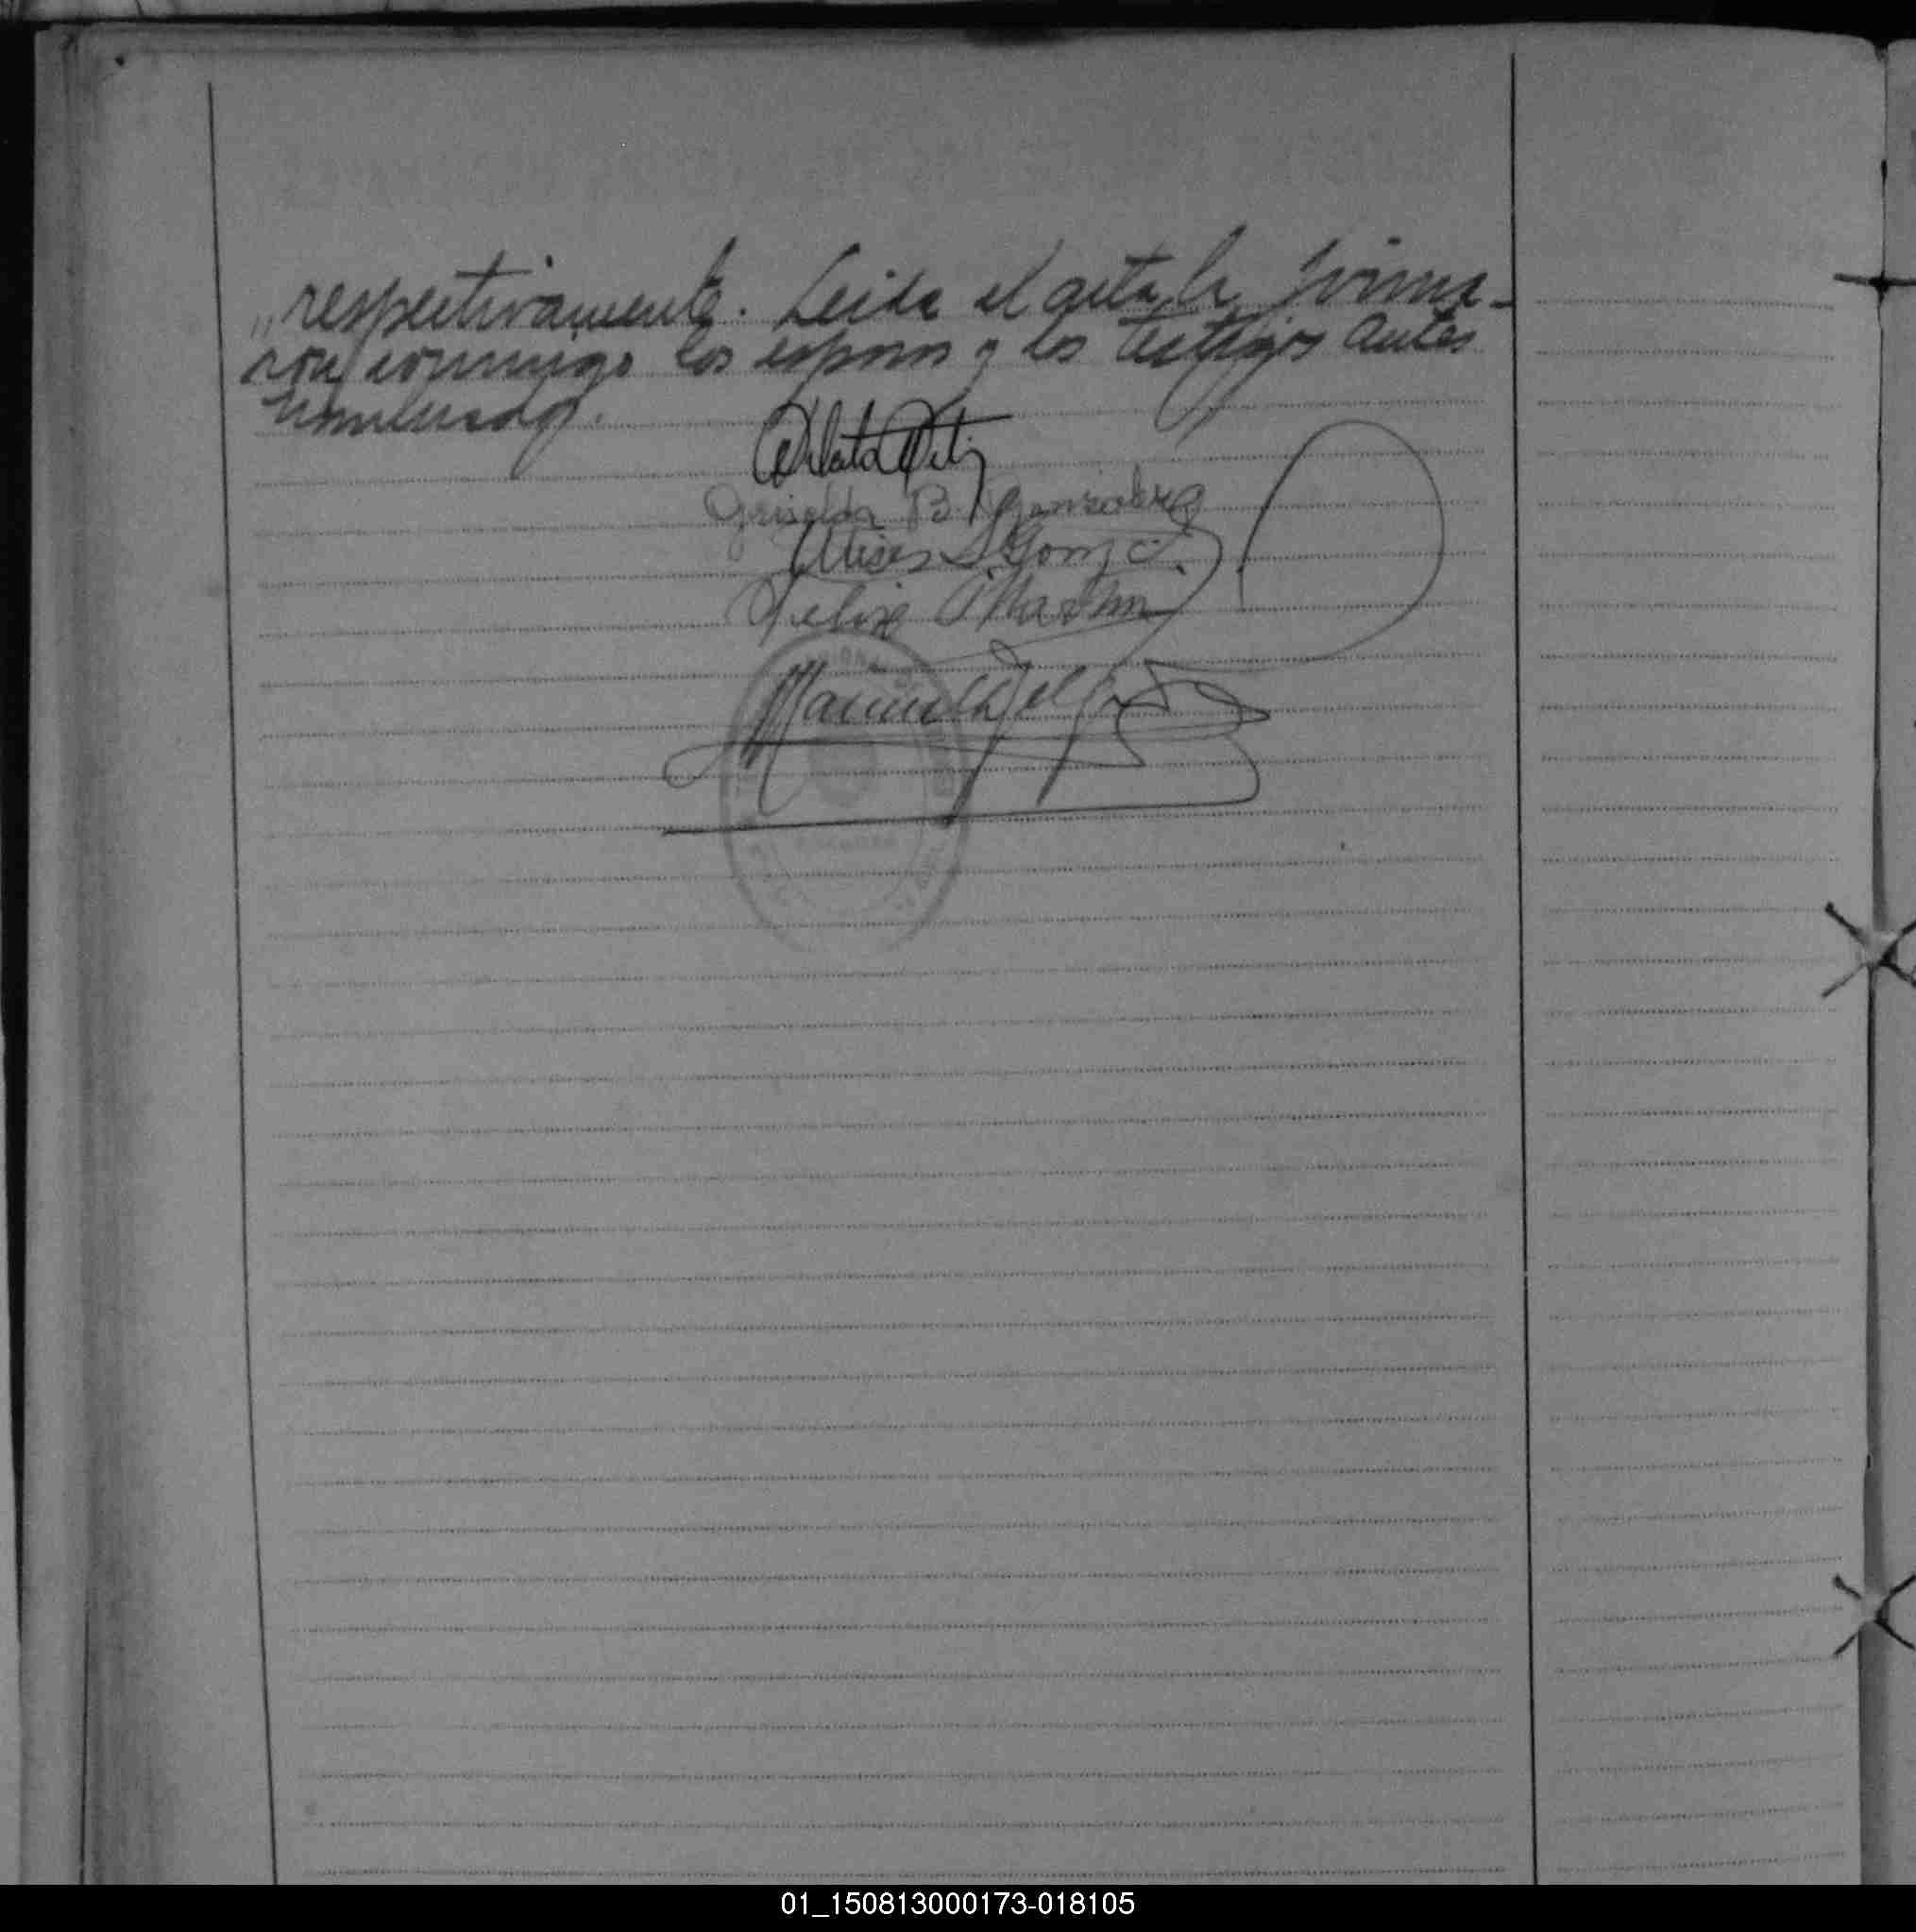 „respectivamente. Leida el acta, la firma-
ron conmigo los esposos y los testigos antes
nombrados.
Griselda B. Gonzalez
Ulises S. Gonz
Felix Martin
Manuel Delg
01_150813000173-018105